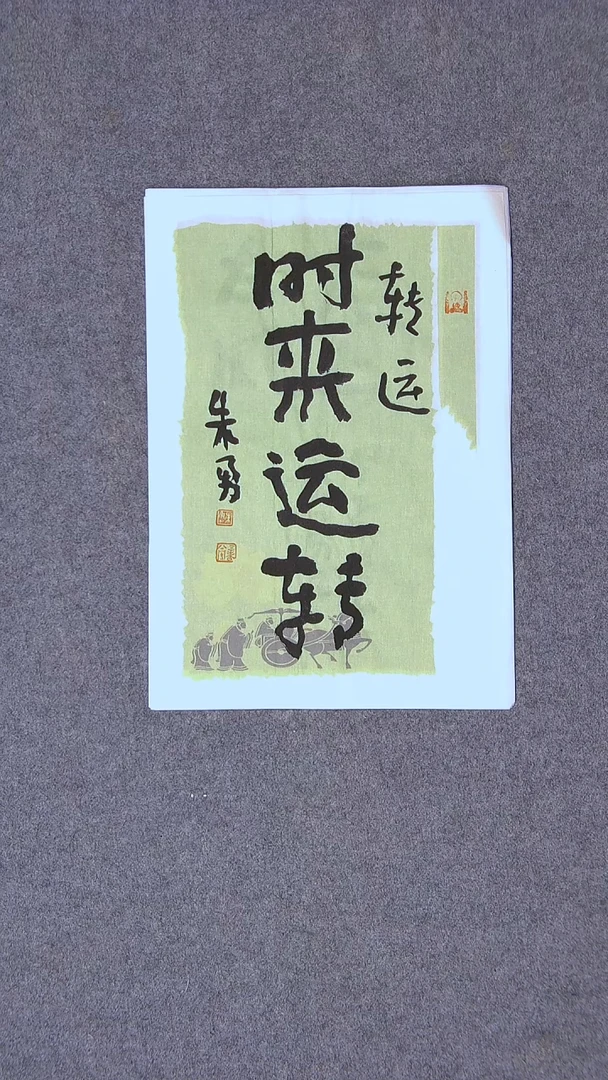 转运
时来运转
朱勇